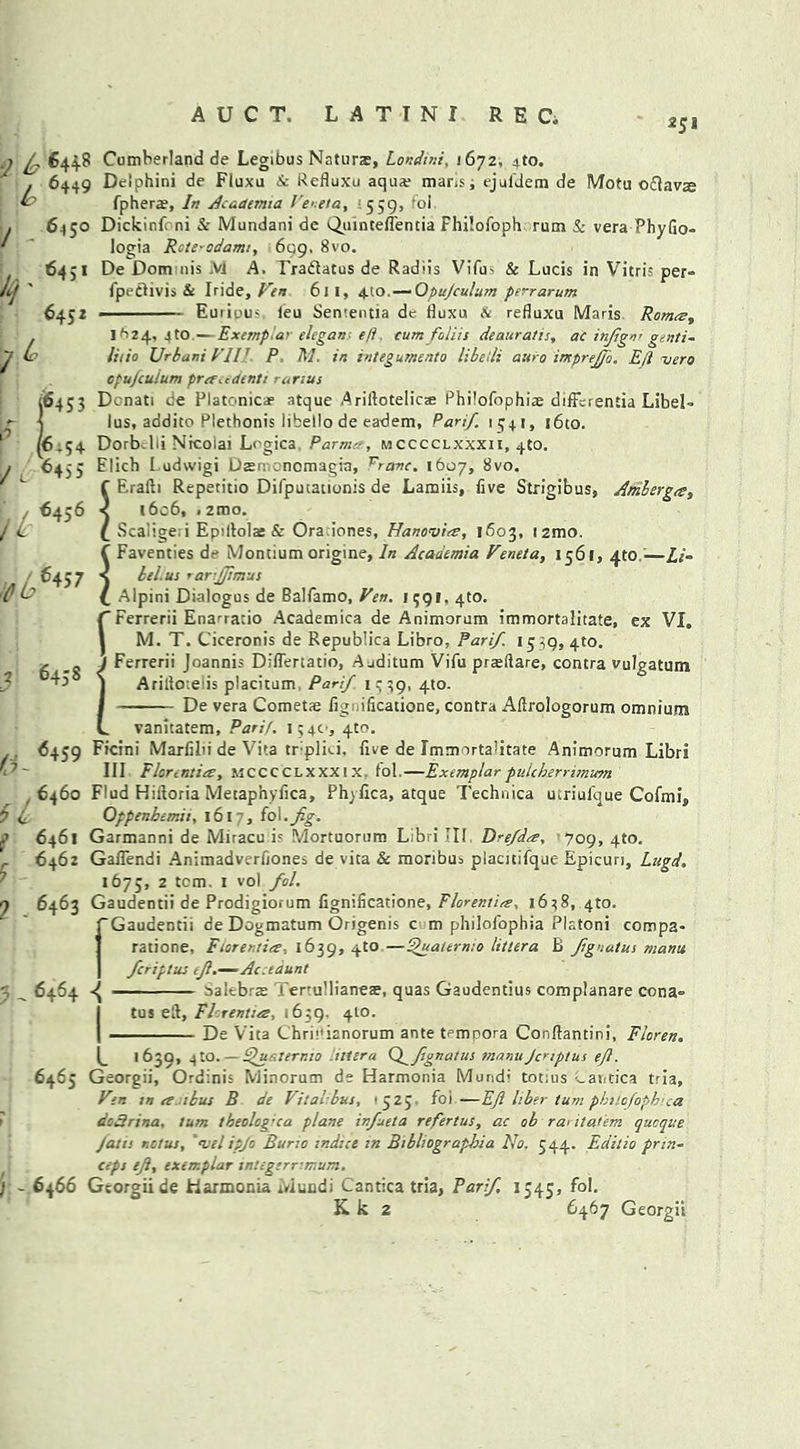 AUCT. LATINI REC.
251
6448 Cumberland de Legibus Naturæ, Londini, 1672, 4to.
6449 Delphini de Fluxu & Refluxu aquæ maris; ejuſdem de Motu octavæ
ſpheræ, In Academia Veneta, 1559, fol
6450 Dickinſoni & Mundani de Quinteſſentia Philoſophorum & vera Phyſio-
logia Roterodami, 1699, 8vo.
6451 De Dominis M A. Tractatus de Radiis Viſus & Lucis in Vitris per-
ſpectivis & Iride, Ven 1611, 4to.—Opuſculum perrarum
6452 ——— Euripus, ſeu Sententia de fluxu & refluxu Maris. Romæ,
1624, 4to.—Exemplar elegans eſt, cum foliis deauratis, ac inſigni genti-
litio Urbani VIII. P. M. in integumento libelli auro impreſſo. Eſt vero
opuſculum præcedenti rarius
6453 Donati de Platonicæ atque Ariſtotelicæ Philoſophiæ differentia Libel-
lus, addito Plethonis libello de eadem, Pariſ. 1541, 16to.
6454 Dorbelli Nicolai Logica, Parmæ, MCCCCLXXXII, 4to.
6455 Elich Ludwigi Dæmonomagia, Franc. 1607, 8vo.
6456 Eraſti Repetitio Diſputationis de Lamiis, ſive Strigibus, Ambergæ,
1606, 12mo.
Scaligeri Epiſtolæ & Orationes, Hanoviæ, 1603, 12mo.
6457 Faventies de Montium origine, In Academia Veneta, 1561, 4to.—Li-
bellus rariſſimus
Alpini Dialogus de Balſamo, Ven. 1591, 4to.
6458 Ferrerii Enarratio Academica de Animorum immortalitate, ex VI.
M. T. Ciceronis de Republica Libro, Pariſ. 1539, 4to.
Ferrerii Joannis Diſſertatio, Auditum Viſu præſtare, contra vulgatum
Ariſtotelis placitum, Pariſ 1539, 4to.
——— De vera Cometæ ſignificatione, contra Aſtrologorum omnium
vanitatem, Pariſ. 1540, 4to.
6459 Ficini Marſilii de Vita triplici, ſive de Immortalitate Animorum Libri
III Florentiæ, MCCCCLXXXIX, fol.—Exemplar pulcherrimum
6460 Flud Hiſtoria Metaphyſica, Phyſica, atque Technica utriuſque Coſmi,
Oppenhemii, 1617, fol. fig.
6461 Garmanni de Miraculis Mortuorum Libri III. Dreſdæ, 1709, 4to.
6462 Gaſſendi Animadverſiones de vita & moribus placitiſque Epicuri, Lugd.
1675, 2 tom. 1 vol fol.
6463 Gaudentii de Prodigiorum ſignificatione, Florentiæ, 1638, 4to.
6464 Gaudentii de Dogmatum Origenis cum philoſophia Platoni compa-
ratione, Florentiæ, 1639, 4to.—Quaternio littera B ſignatus manu
ſcriptus eſt.—Accedunt
——— Salebræ Tertullianeæ, quas Gaudentius complanare cona-
tus eſt, Florentiæ, 1639, 4to.
——— De Vita Chriſtianorum ante tempora Conſtantini, Floren.
1639, 4to.—Quaternio littera Q ſignatus manu ſcriptus eſt.
6465 Georgii, Ordinis Minorum de Harmonia Mundi totius Cantica tria,
Ven in ædibus B. de Vitalibus, 1525, fol—Eſt liber tum philoſophica
doctrina, tum theologica plane inſueta refertus, ac ob raritatem quoque
ſatis notus, vel ipſo Buno indice in Bibliographia No. 544. Editio prin-
ceps eſt, exemplar integerrimum.
6466 Georgii de Harmonia Mundi Cantica tria, Pariſ. 1545, fol.
K k 2
6467 Georgii